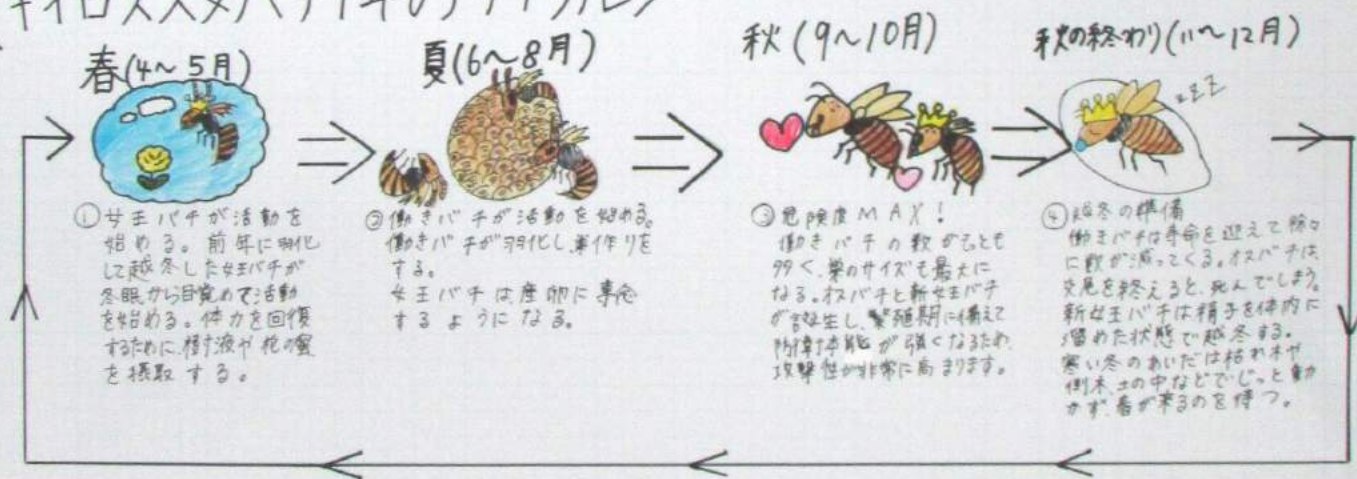 キイロスズメバチ1年のライフサイクル
春(4〜5月)
夏(6〜8月)
秋(9〜10月)
秋の終わり(11〜12月)
①女王バチが活動を
始める。前年に羽化
して越冬した女王バチが
冬眠から目覚めて活動
を始める。体力を回復
するために、樹液や花の蜜
を摂取する。
②働きバチが活動を始める。
働きバチが羽化し、巣作りを
する。
女王バチは産卵に専念
するようになる。
③危険度MAX!
働きバチの数がもっとも
多く、巣のサイズも最大に
なる。オスバチと新女王バチ
が誕生し、繁殖期に備えて
防衛本能が強くなるため、
攻撃性が非常に高まります。
zzz
④越冬の準備
働きバチは寿命を迎えて徐々
に数が減ってくる。オスバチは、
交尾を終えると、死んでしまう。
新女王バチは精子を体内に
溜めた状態で越冬する。
寒い冬のあいだは枯れ木や
倒木、土の中などでじっと動
かず、春が来るのを待つ。